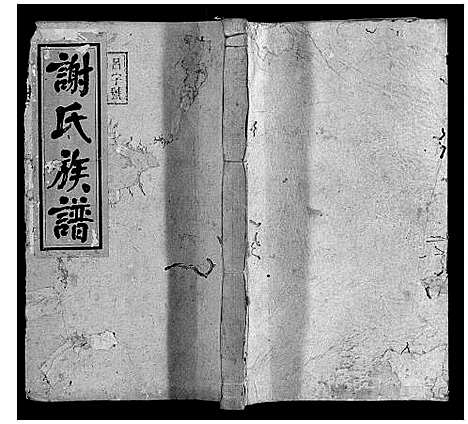 謝氏族譜
字號